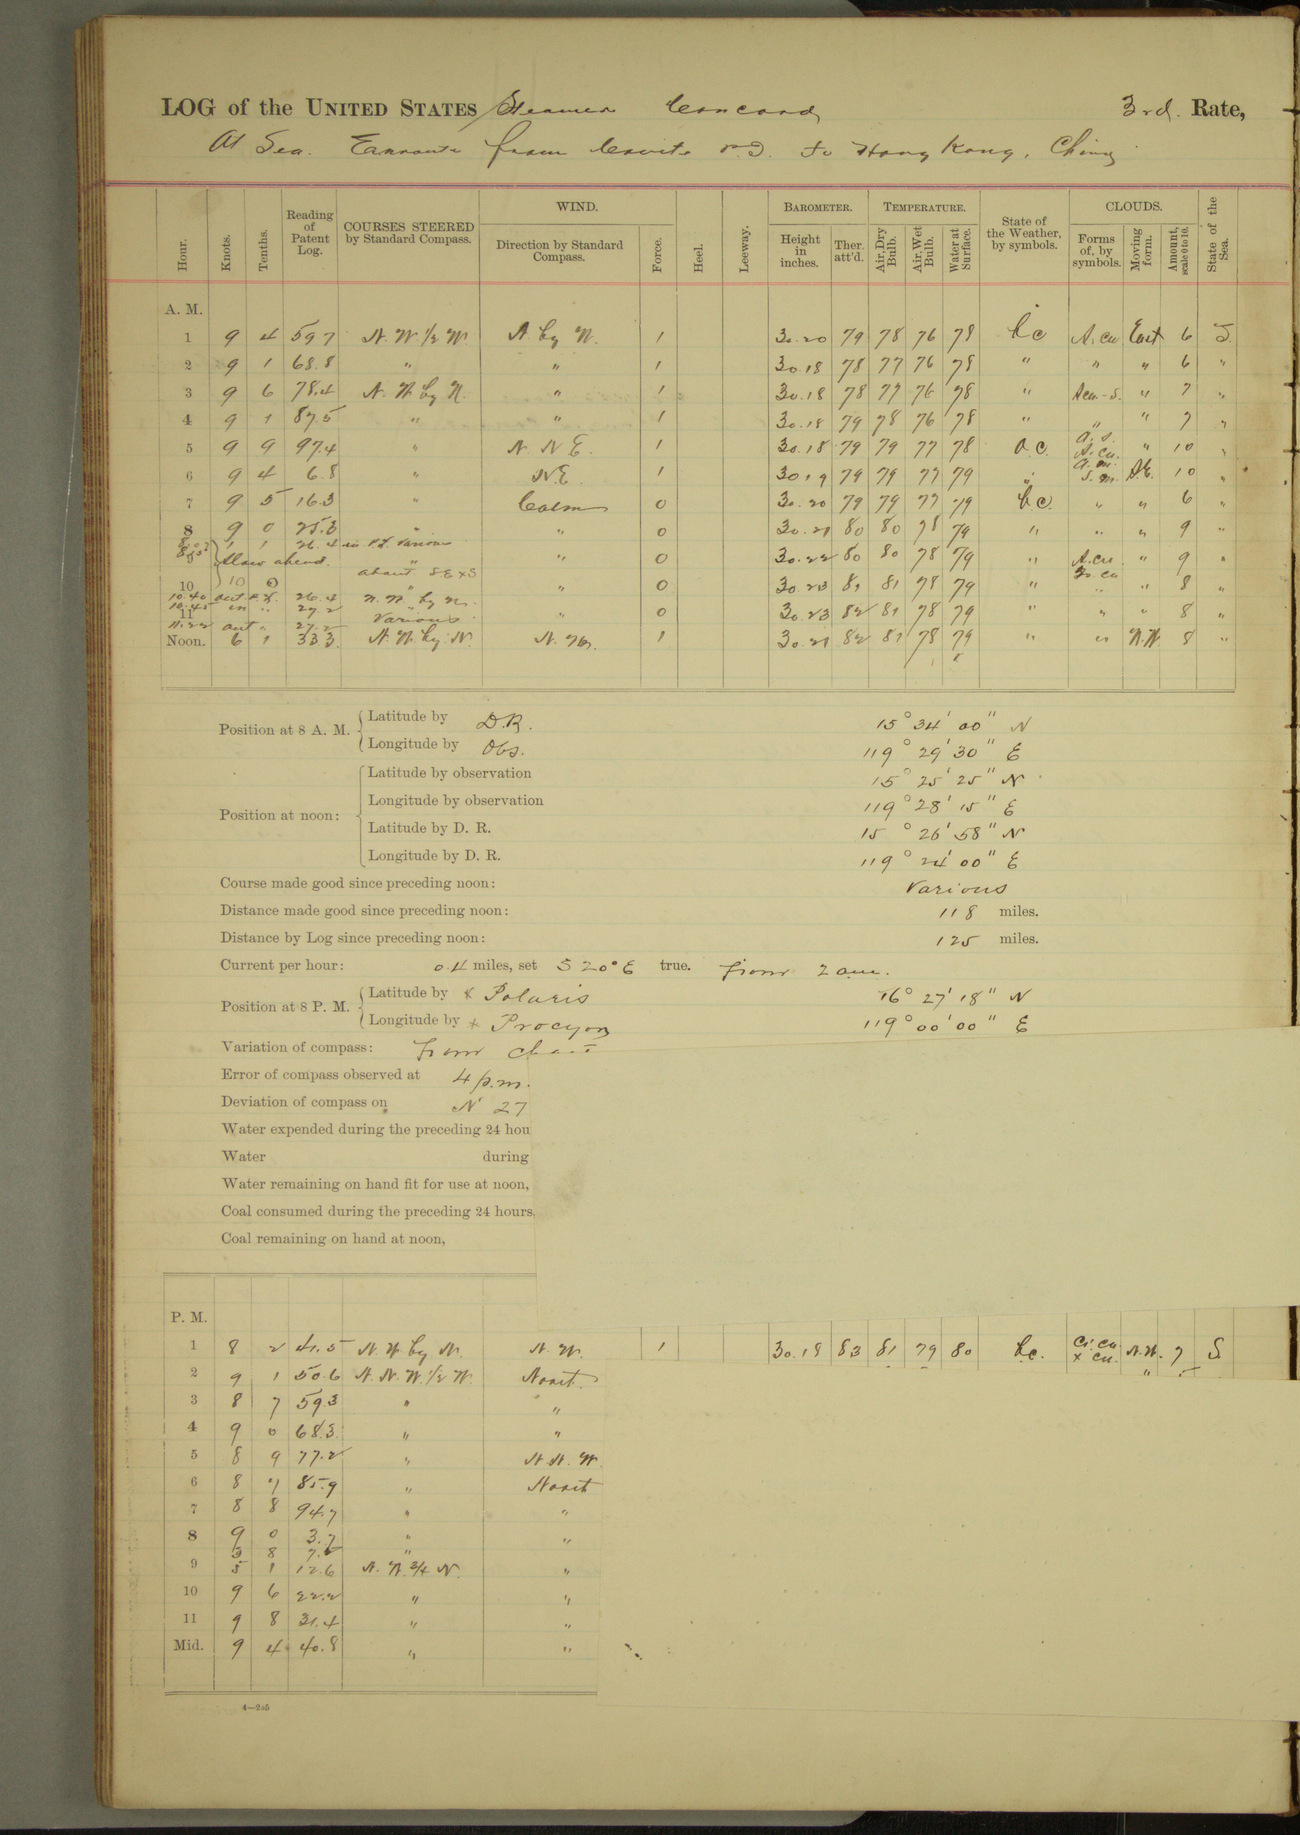 LOG of the UNITED STATES Steamer Concord 3rd. Rate,
At Sea. Enroute from Cavite P.I. to Hong Kong, China
Hour. Knots. Tenths. Reading of Patent Log. COURSES STEERED by Standard Compass. WIND. Direction by Standard Compass. Force. Heel. Leeway. BAROMETER. Height in inches. Ther. att'd. TEMPERATURE. Air, Dry Bulb. Air, Wet Bulb. Water at Surface. State of the Weather, by symbols. CLOUDS. Forms of, by symbols. Moving form. Amount, scale 0 to 10. State of the Sea.
A. M.
1 9 4 59.7 N. W. 1/2 W. N by W. 1 30.20 79 78 76 78 b c A. cu East 6 S.
2 9 1 68.8 " " 1 30.18 78 77 76 78 " " " 6 "
3 9 6 78.4 N. W. by N. " 1 30.18 78 77 76 78 " A cu.-S. " 7 "
4 9 1 87.5 " " 1 30.18 79 78 76 78 " " " 7 "
5 9 9 97.4 " N. N E. 1 30.18 79 79 77 78 o. c. a. s. A. cu. " 10 "
6 9 4 6.8 " N.E. 1 30.19 79 79 77 79 " 10 "
7 9 5 16.3 " Calm 0 30.20 79 79 77 79 b.c. " " 6 "
8 9 0 25.3 " " 0 30.21 80 80 78 79 " " " 9 "
1 1 26.4 in P.L. Various
9 Slow ahead. " " 0 30.22 80 80 78 79 " A.cu. " 9 "
about SE x S
10 10 0 " 0 30.23 81 81 78 79 " " 8 "
10.40 out P.L. 26.4 N. W. by N.
10.45 in " 27.2 "
11 Various " 0 30.23 82 81 78 79 " " " 8 "
11.22 out " 27.2
Noon. 6 1 33.3. N. W. by N. N. W. 1 30.21 82 81 78 79 " " N.W. 8 "
Position at 8 A. M. Latitude by D.R. 15° 34' 00" N
Longitude by Obs. 119° 29' 30" E
Position at noon: Latitude by observation 15° 25' 25" N
Longitude by observation 119° 28' 15" E
Latitude by D. R. 15° 26' 58" N
Longitude by D. R. 119° 24' 00" E
Course made good since preceding noon: Various
Distance made good since preceding noon: 118 miles.
Distance by Log since preceding noon: 125 miles.
Current per hour: 0.4 miles, set S 20° E true. from 2 am.
Position at 8 P. M. Latitude by * Polaris 16° 27' 18" N
Longitude by * Procyon 119° 00' 00" E
Variation of compass: from chart
Error of compass observed at 4 p.m.
Deviation of compass on N 27
Water expended during the preceding 24 hou
Water during
Water remaining on hand fit for use at noon,
Coal consumed during the preceding 24 hours,
Coal remaining on hand at noon,
P. M.
1 8 2 41.5 N. W. by N. N. W. 1 30.18 83 81 79 80 b.c. Ci. cu x cu. N.W. 7 S
2 9 1 50.6 N. N. W. 1/2 W. North. "
3 8 7 59.3 " "
4 9 0 68.3 " "
5 8 9 77.2 " N. N. W.
6 8 7 85.9 " North
7 8 8 94.7 " "
8 9 0 3.7 " "
3 8 "
9 5 1 12.6 N. W. 3/4 N. "
10 9 6 22.2 " "
11 9 8 31.4 " "
Mid. 9 4 40.8 " "